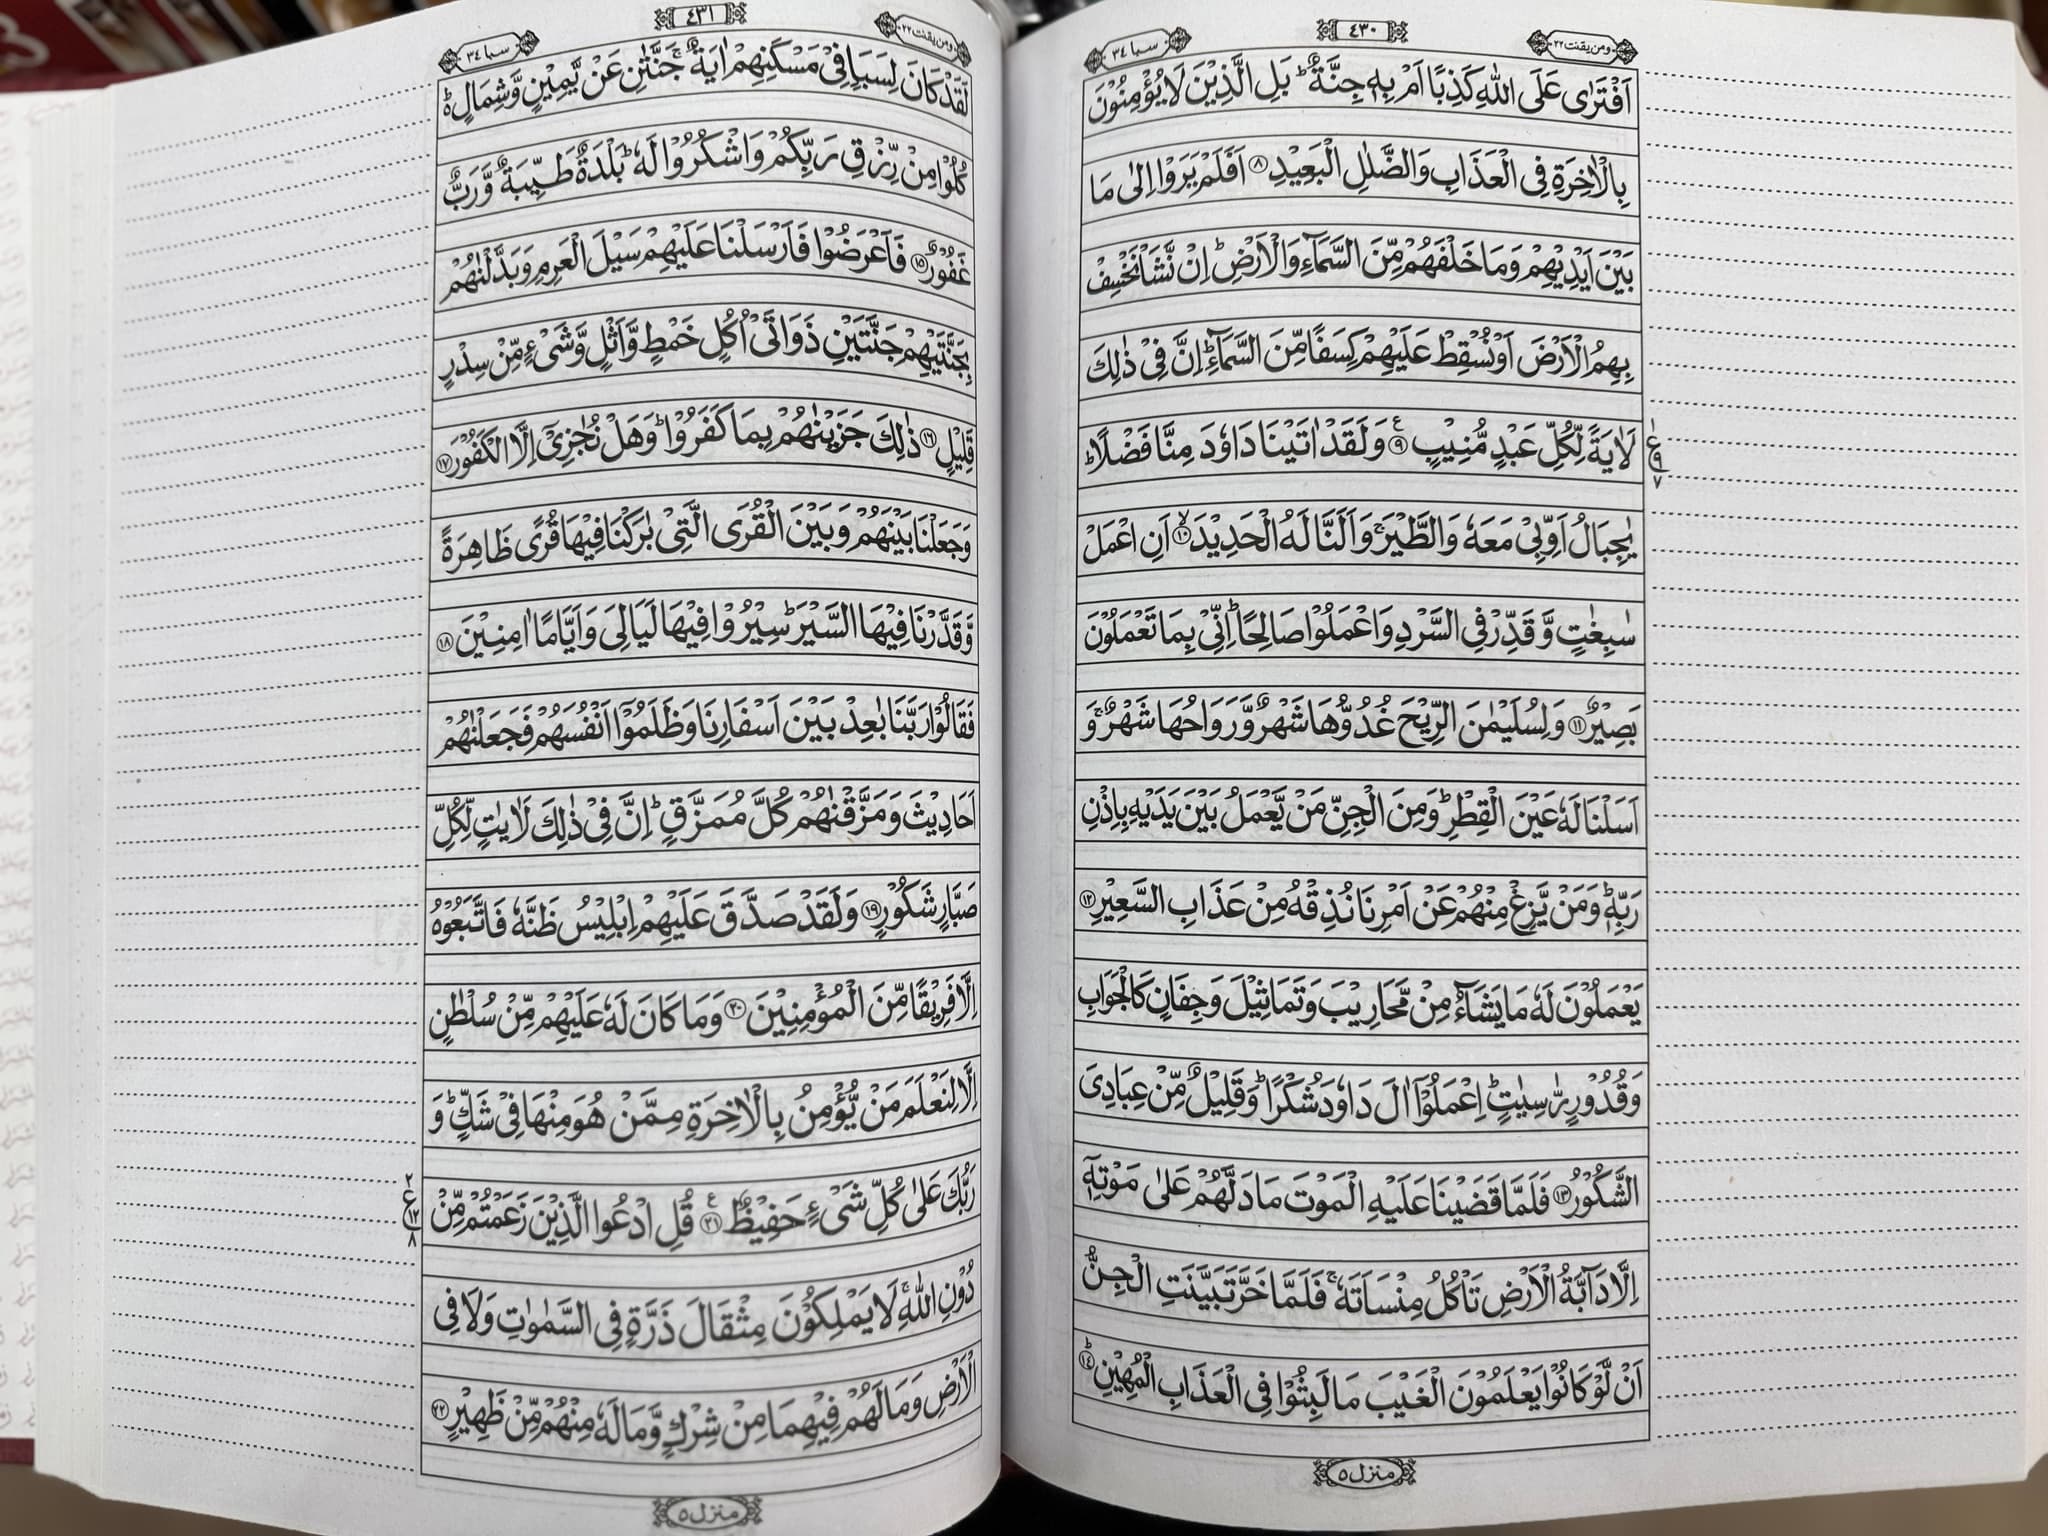 ومن یقنت ٢٢
٤٣٠
سبا ٣٤
اَفْتَرٰى عَلَى اللّٰهِ كَذِبًا اَمْ بِهٖ جِنَّةٌ ؕ بَلِ الَّذِيْنَ لَا يُؤْمِنُوْنَ
بِالْاٰخِرَةِ فِى الْعَذَابِ وَالضَّلٰلِ الْبَعِيْدِ ۝٨ اَفَلَمْ يَرَوْا اِلٰى مَا
بَيْنَ اَيْدِيْهِمْ وَمَا خَلْفَهُمْ مِّنَ السَّمَآءِ وَالْاَرْضِ ؕ اِنْ نَّشَاْ نَخْسِفْ
بِهِمُ الْاَرْضَ اَوْ نُسْقِطْ عَلَيْهِمْ كِسَفًا مِّنَ السَّمَآءِ ؕ اِنَّ فِىْ ذٰلِكَ
لَاٰيَةً لِّكُلِّ عَبْدٍ مُّنِيْبٍ ۝٩ وَلَقَدْ اٰتَيْنَا دَاوٗدَ مِنَّا فَضْلًا ؕ
ع ٩ ٧
يٰجِبَالُ اَوِّبِىْ مَعَهٗ وَالطَّيْرَ ۚ وَاَلَنَّا لَهُ الْحَدِيْدَ ۝١٠ۙ اَنِ اعْمَلْ
سٰبِغٰتٍ وَّقَدِّرْ فِى السَّرْدِ وَاعْمَلُوْا صَالِحًا ؕ اِنِّىْ بِمَا تَعْمَلُوْنَ
بَصِيْرٌ ۝١١ وَلِسُلَيْمٰنَ الرِّيْحَ غُدُوُّهَا شَهْرٌ وَّرَوَاحُهَا شَهْرٌ ۚ وَ
اَسَلْنَا لَهٗ عَيْنَ الْقِطْرِ ؕ وَمِنَ الْجِنِّ مَنْ يَّعْمَلُ بَيْنَ يَدَيْهِ بِاِذْنِ
رَبِّهٖ ؕ وَمَنْ يَّزِغْ مِنْهُمْ عَنْ اَمْرِنَا نُذِقْهُ مِنْ عَذَابِ السَّعِيْرِ ۝١٢
يَعْمَلُوْنَ لَهٗ مَا يَشَآءُ مِنْ مَّحَارِيْبَ وَتَمَاثِيْلَ وَجِفَانٍ كَالْجَوَابِ
وَقُدُوْرٍ رّٰسِيٰتٍ ؕ اِعْمَلُوْۤا اٰلَ دَاوٗدَ شُكْرًا ؕ وَقَلِيْلٌ مِّنْ عِبَادِىَ
الشَّكُوْرُ ۝١٣ فَلَمَّا قَضَيْنَا عَلَيْهِ الْمَوْتَ مَا دَلَّهُمْ عَلٰى مَوْتِهٖۤ
اِلَّا دَآبَّةُ الْاَرْضِ تَاْكُلُ مِنْسَاَتَهٗ ۚ فَلَمَّا خَرَّ تَبَيَّنَتِ الْجِنُّ
اَنْ لَّوْ كَانُوْا يَعْلَمُوْنَ الْغَيْبَ مَا لَبِثُوْا فِى الْعَذَابِ الْمُهِيْنِ ۝١٤ؕ
منزل ٥
ومن یقنت ٢٢
٤٣١
سبا ٣٤
لَقَدْ كَانَ لِسَبَاٍ فِىْ مَسْكَنِهِمْ اٰيَةٌ ۚ جَنَّتٰنِ عَنْ يَّمِيْنٍ وَّشِمَالٍ ؕ
كُلُوْا مِنْ رِّزْقِ رَبِّكُمْ وَاشْكُرُوْا لَهٗ ؕ بَلْدَةٌ طَيِّبَةٌ وَّرَبٌّ
غَفُوْرٌ ۝١٥ فَاَعْرَضُوْا فَاَرْسَلْنَا عَلَيْهِمْ سَيْلَ الْعَرِمِ وَبَدَّلْنٰهُمْ
بِجَنَّتَيْهِمْ جَنَّتَيْنِ ذَوَاتَىْ اُكُلٍ خَمْطٍ وَّاَثْلٍ وَّشَىْءٍ مِّنْ سِدْرٍ
قَلِيْلٍ ۝١٦ ذٰلِكَ جَزَيْنٰهُمْ بِمَا كَفَرُوْا ؕ وَهَلْ نُجٰزِىْۤ اِلَّا الْكَفُوْرَ ۝١٧
وَجَعَلْنَا بَيْنَهُمْ وَبَيْنَ الْقُرَى الَّتِىْ بٰرَكْنَا فِيْهَا قُرًى ظَاهِرَةً
وَّقَدَّرْنَا فِيْهَا السَّيْرَ ؕ سِيْرُوْا فِيْهَا لَيَالِىَ وَاَيَّامًا اٰمِنِيْنَ ۝١٨
فَقَالُوْا رَبَّنَا بٰعِدْ بَيْنَ اَسْفَارِنَا وَظَلَمُوْۤا اَنْفُسَهُمْ فَجَعَلْنٰهُمْ
اَحَادِيْثَ وَمَزَّقْنٰهُمْ كُلَّ مُمَزَّقٍ ؕ اِنَّ فِىْ ذٰلِكَ لَاٰيٰتٍ لِّكُلِّ
صَبَّارٍ شَكُوْرٍ ۝١٩ وَلَقَدْ صَدَّقَ عَلَيْهِمْ اِبْلِيْسُ ظَنَّهٗ فَاتَّبَعُوْهُ
اِلَّا فَرِيْقًا مِّنَ الْمُؤْمِنِيْنَ ۝٢٠ وَمَا كَانَ لَهٗ عَلَيْهِمْ مِّنْ سُلْطٰنٍ
اِلَّا لِنَعْلَمَ مَنْ يُّؤْمِنُ بِالْاٰخِرَةِ مِمَّنْ هُوَ مِنْهَا فِىْ شَكٍّ ؕ وَ
رَبُّكَ عَلٰى كُلِّ شَىْءٍ حَفِيْظٌ ۝٢١ قُلِ ادْعُوا الَّذِيْنَ زَعَمْتُمْ مِّنْ
٢ ع ١٢ ٨
دُوْنِ اللّٰهِ ۚ لَا يَمْلِكُوْنَ مِثْقَالَ ذَرَّةٍ فِى السَّمٰوٰتِ وَلَا فِى
الْاَرْضِ وَمَا لَهُمْ فِيْهِمَا مِنْ شِرْكٍ وَّمَا لَهٗ مِنْهُمْ مِّنْ ظَهِيْرٍ ۝٢٢
منزل ٥